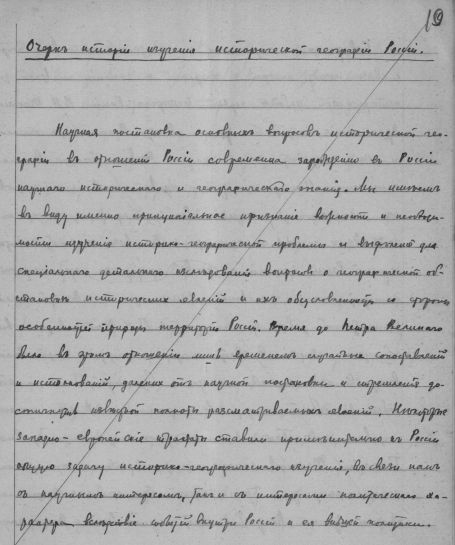 19
Очеркъ исторіи изученія исторической географіи Россіи.
Научная постановка основныхъ вопросовъ исторической гео-
графіи въ отношеніи Россіи современна зарожденію въ Россіи
научнаго историческаго и географическаго знанія. Мы имѣемъ
въ виду именно принципіальное признаніе важности и необходи-
мости изученія историко-географической проблемы и выдѣленіе для
спеціальнаго детальнаго изслѣдованія вопросовъ о географической об-
становкѣ историческихъ явленій и ихъ обусловленности со стороны
особенностей природы территоріи Россіи. Время до Петра Великаго
было въ этомъ отношеніи лишь временемъ случайныхъ сопоставленій
и истолкованій, далекихъ отъ научной постановки и стремленія до-
полноты разсматриваемыхъ явленій. Нѣкоторые
западно-европейскіе трактаты ставили примѣнительно къ Россіи
общую задачу историко-географическаго изученія, въ связи какъ
съ научнымъ интересомъ, такъ и съ интересами политическаго ха-
рактера вслѣдствіе событій внутри Россіи и ея внѣшней политики.